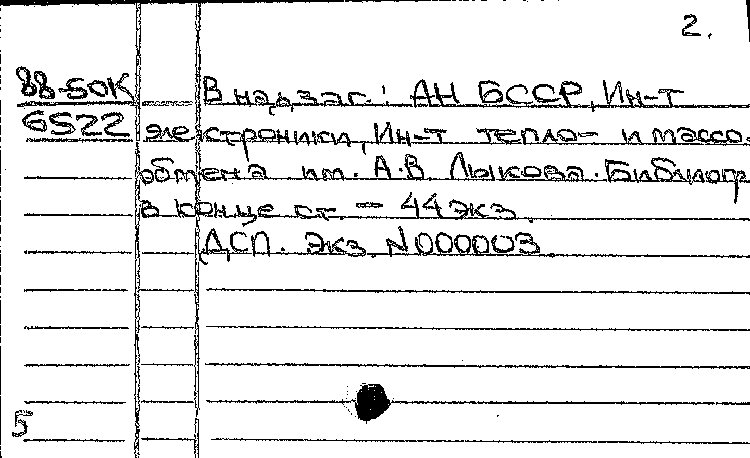 2.
88-50К В надзаг.: АН БССР, Ин-т
6522 электроники, Ин-т тепло- и массо-
обмена им. А.В. Лыкова. Библиогр.
в конце ст. - 44 экз.
ДСП. Экз. N000003
5